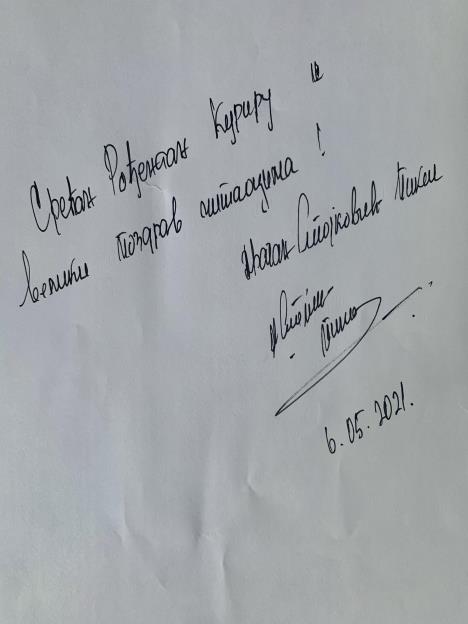 Срећан Рођендан Куриру и
велики поздрав читаоцима !
Драган Стојковић Пикси
6.05.2021.